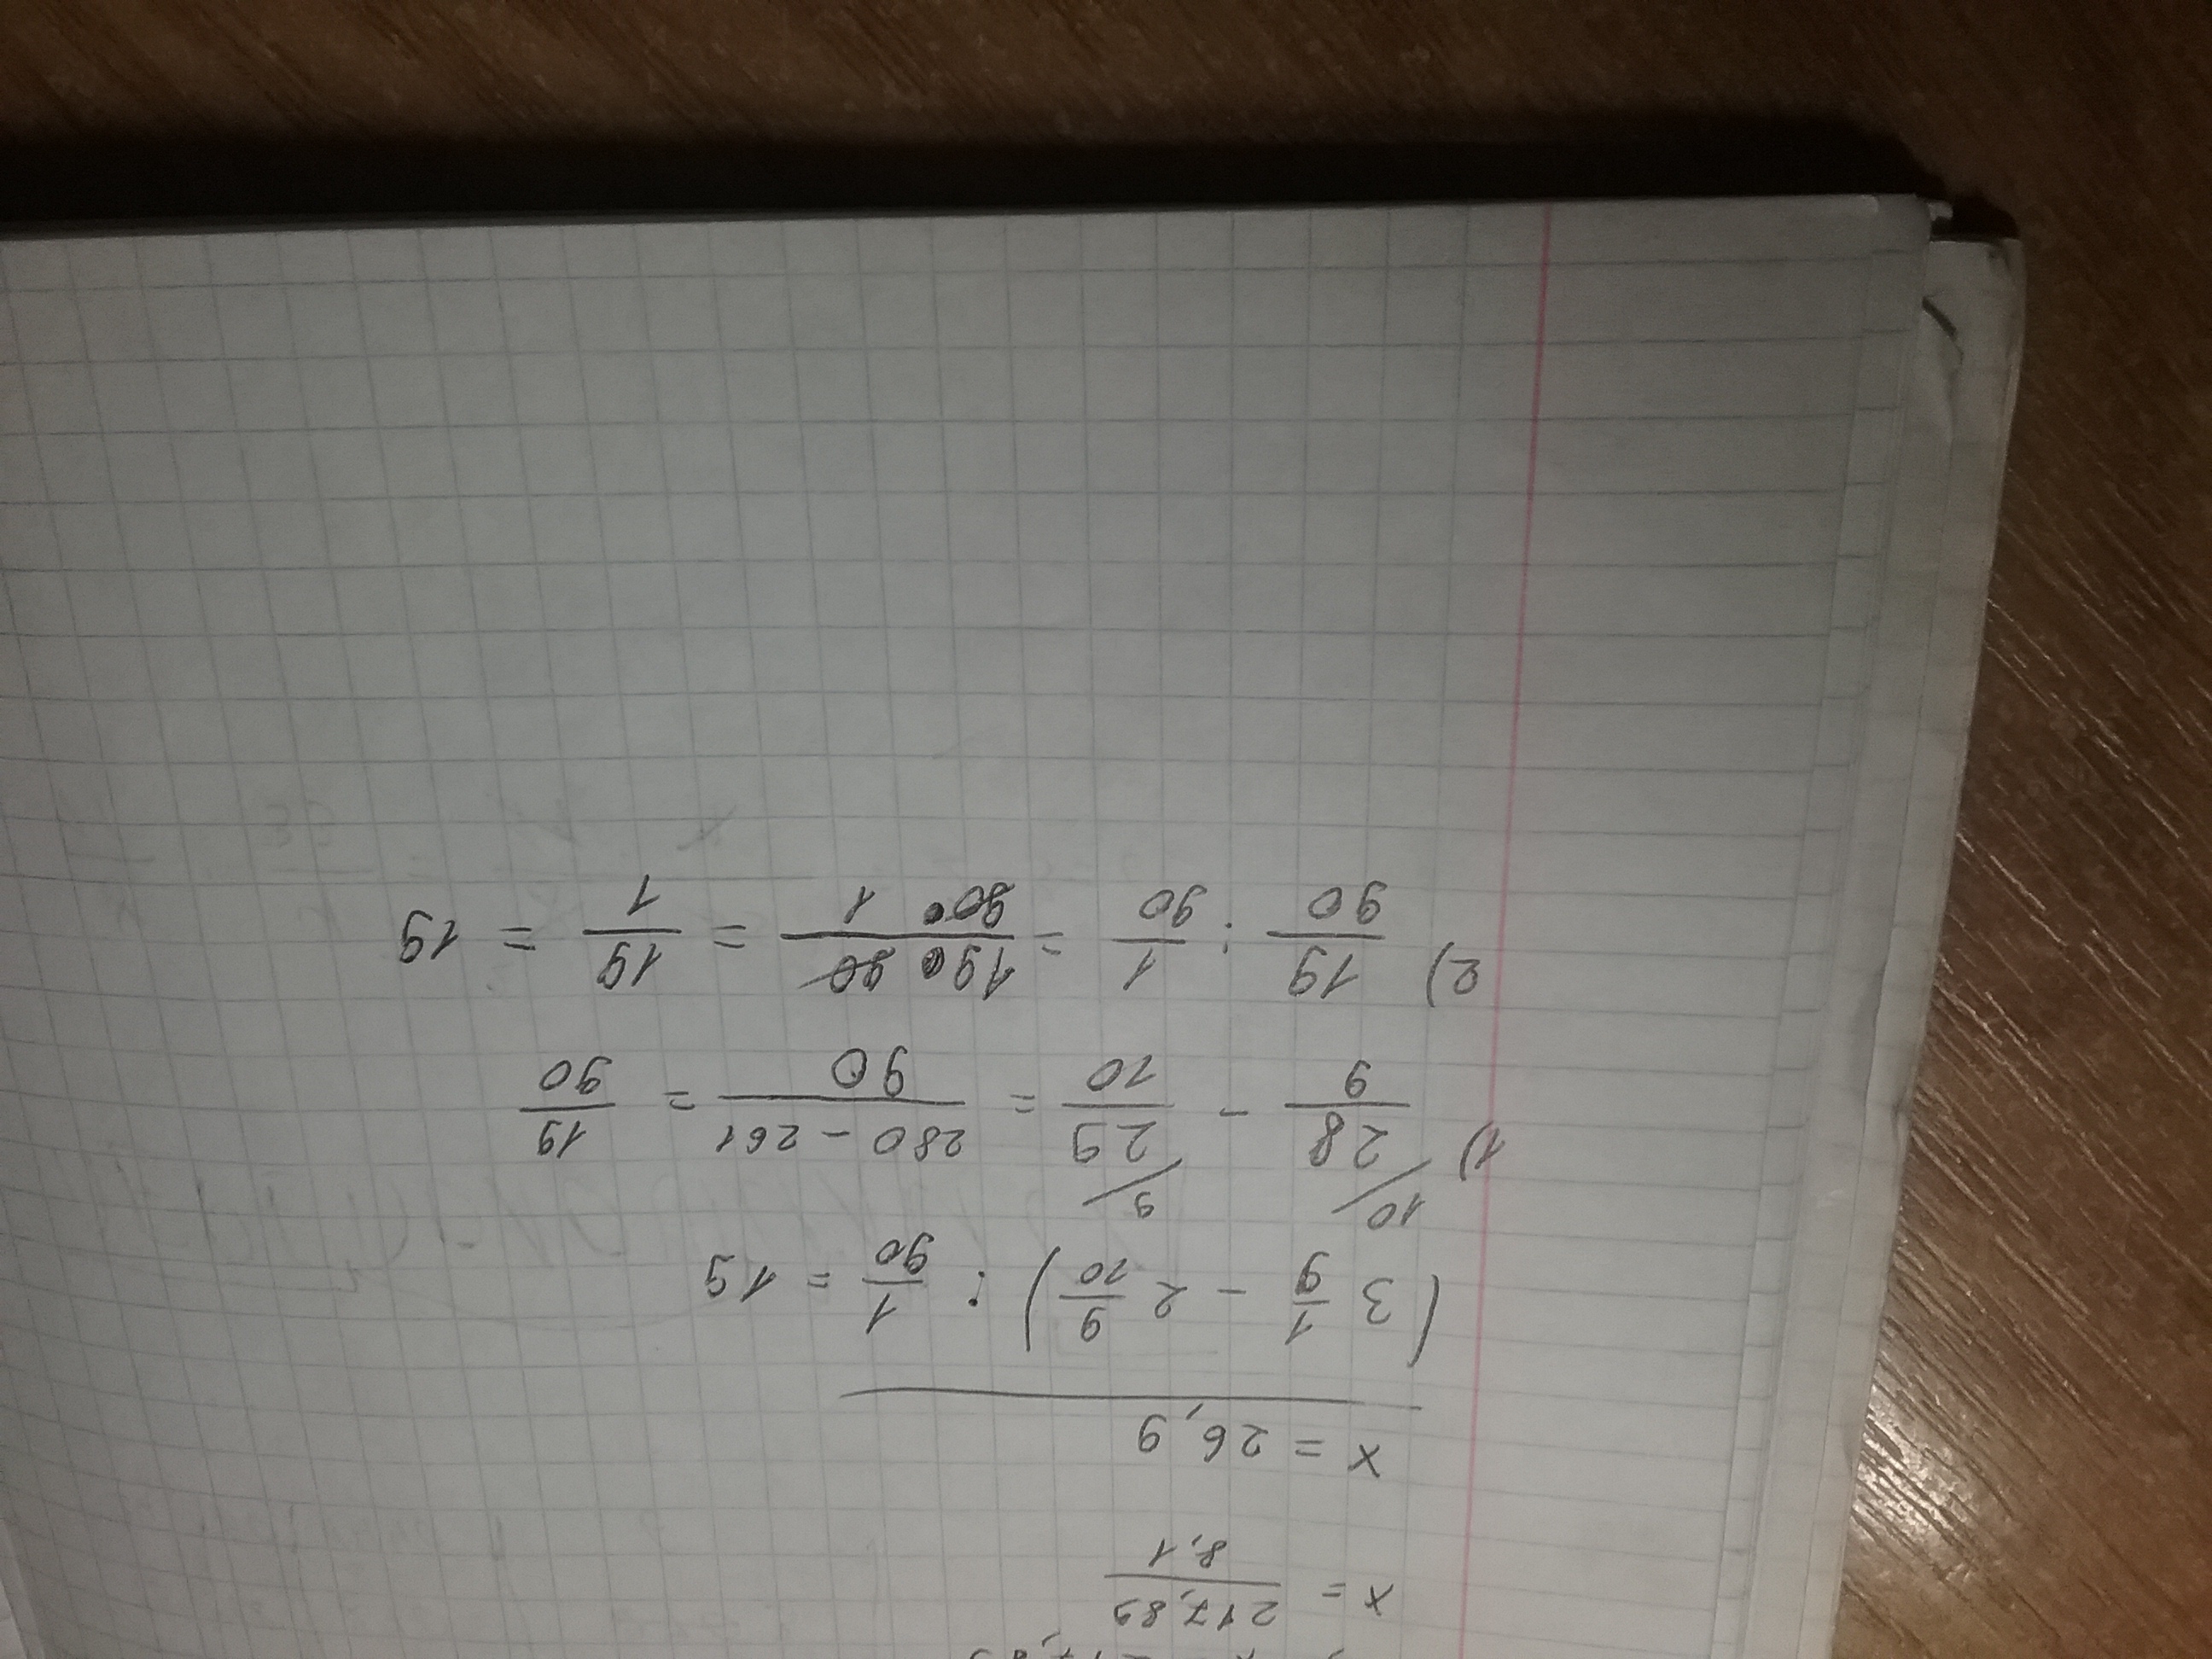 x = 217,89 / 8,1
x = 26,9
(3 1/9 - 2 9/10) : 1/90 = 19
1) 28/9 (10 - 29/10 (9 = 280 - 261 / 90 = 19/90
2) 19/90 : 1/90 = 19 • 90 / 90 • 1 = 19/1 = 19